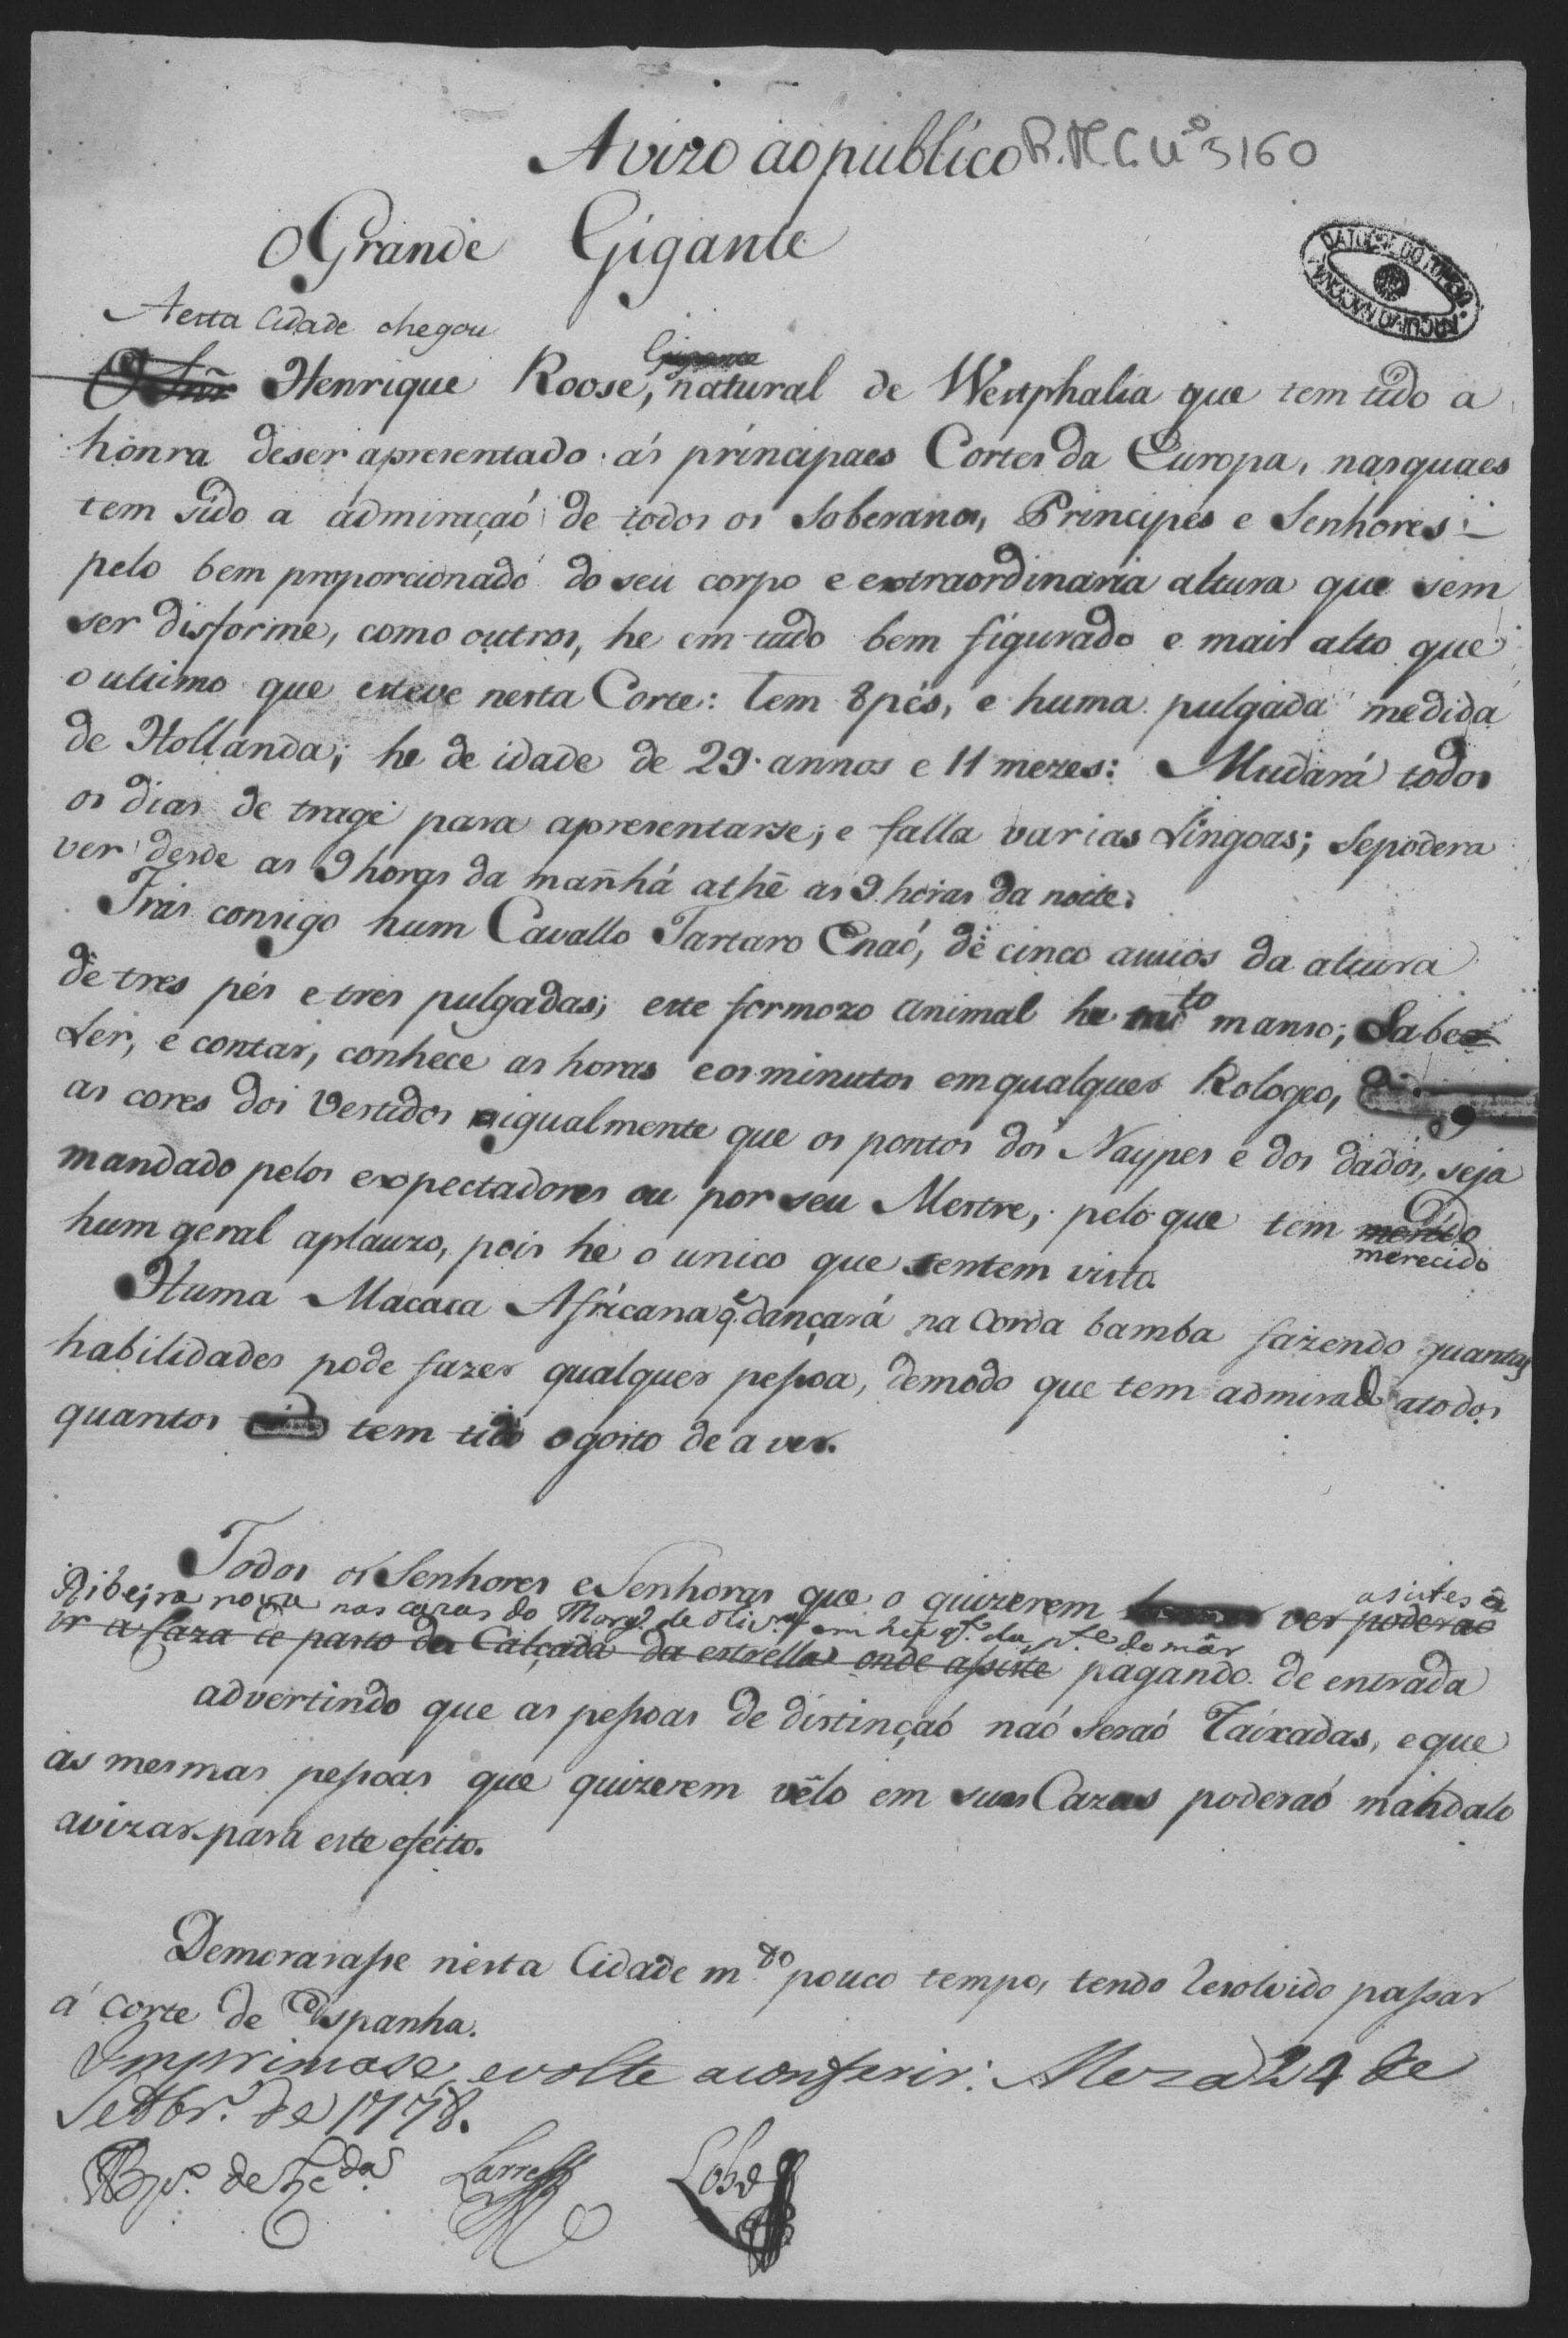 Avizo ao publico R. M. C. nº 5160
O Grande Gigante
ARQUIVO NACIONAL DA TORRE DO TOMBO
Aesta Cidade chegou
O Snr̃ Henrique Roose, Gigante natural de Westphalia que tem tido a
honra deser apresentado ás principaes Cortes da Europa, nasquaes
tem sido a admiraçaó de todos os Soberanos, Principes e Senhores
pelo bem proporcionado do seu corpo e extraordinaria altura que sem
ser disforme, como outros, he em tudo bem figurado e mais alto que
o ultimo que esteve nesta Corte: Tem 8 pés, e huma pulgada medida
de Hollanda; he de idade de 29 annos e 11 mezes: Mudará todos
os dias de trage para apresentarse; e falla varias Lingoas; Sepodera
ver desde as 9 horas da manhá athe as 9 horas da noite.
Tras consigo hum Cavallo Tartaro Enaó, de cinco annos da altura
de tres pés e tres pulgadas; este formozo animal he mto manso; Sabe
Ler, e contar, conhece as horas eos minutos emqualquer Rologeo, e
as cores dos Vestidos igualmente que os pontos dos Naypes e dos dados, seja
mandado pelos expectadores ou por seu Mestre, pelo que tem merecido
hum geral aplauzo, pois he o unico que sentem visto.
Huma Macaca Africana q̃ dançará na Corda bamba fazendo quantas
habilidades pode fazer qualquer peſsoa, demodo que tem admirado atodos
quantos tem tido ogosto de a ver.
Todos os Senhores e Senhoras que o quizerem ver poderaó asistes á
Ribeira nova nas cazas do Morg.do de Oliv.ra em
ir a Caza de pasto da Calçada da estrella onde aſsiste pagando de entrada
advertindo que as peſsoas de distinçaó naó seraó Taixadas, e que
as mesmas peſsoas que quizerem velo em suas Cazas poderaó mandalo
avizar para este efeito.
Demoraraſse nesta Cidade m.to pouco tempo, tendo Resolvido paſsar
á corte de Espanha.
Imprimase, evolte aconferir. Meza 24 de
Settbr.º de 1778.